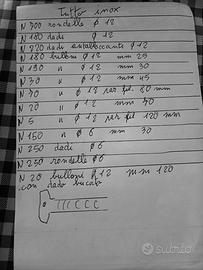 Tutto inox
N 700 rondelle φ 12
N 180 dadi φ 12
N 220 dadi autobloccanti φ 12
N 180 bulloni φ 12 mm 25
N 190 " φ 12 mm 30
N 30 " φ 12 mm 45
N 70 " φ 12 per fil. 80 mm
N 20 " φ 12 mm 70
N 5 " φ 12 per fil 120 mm
N 150 " φ 6 mm 30
N 250 dadi φ 6
N 250 rondelle φ 6
N 20 bulloni φ 12 mm 120
con dado bucato
subito